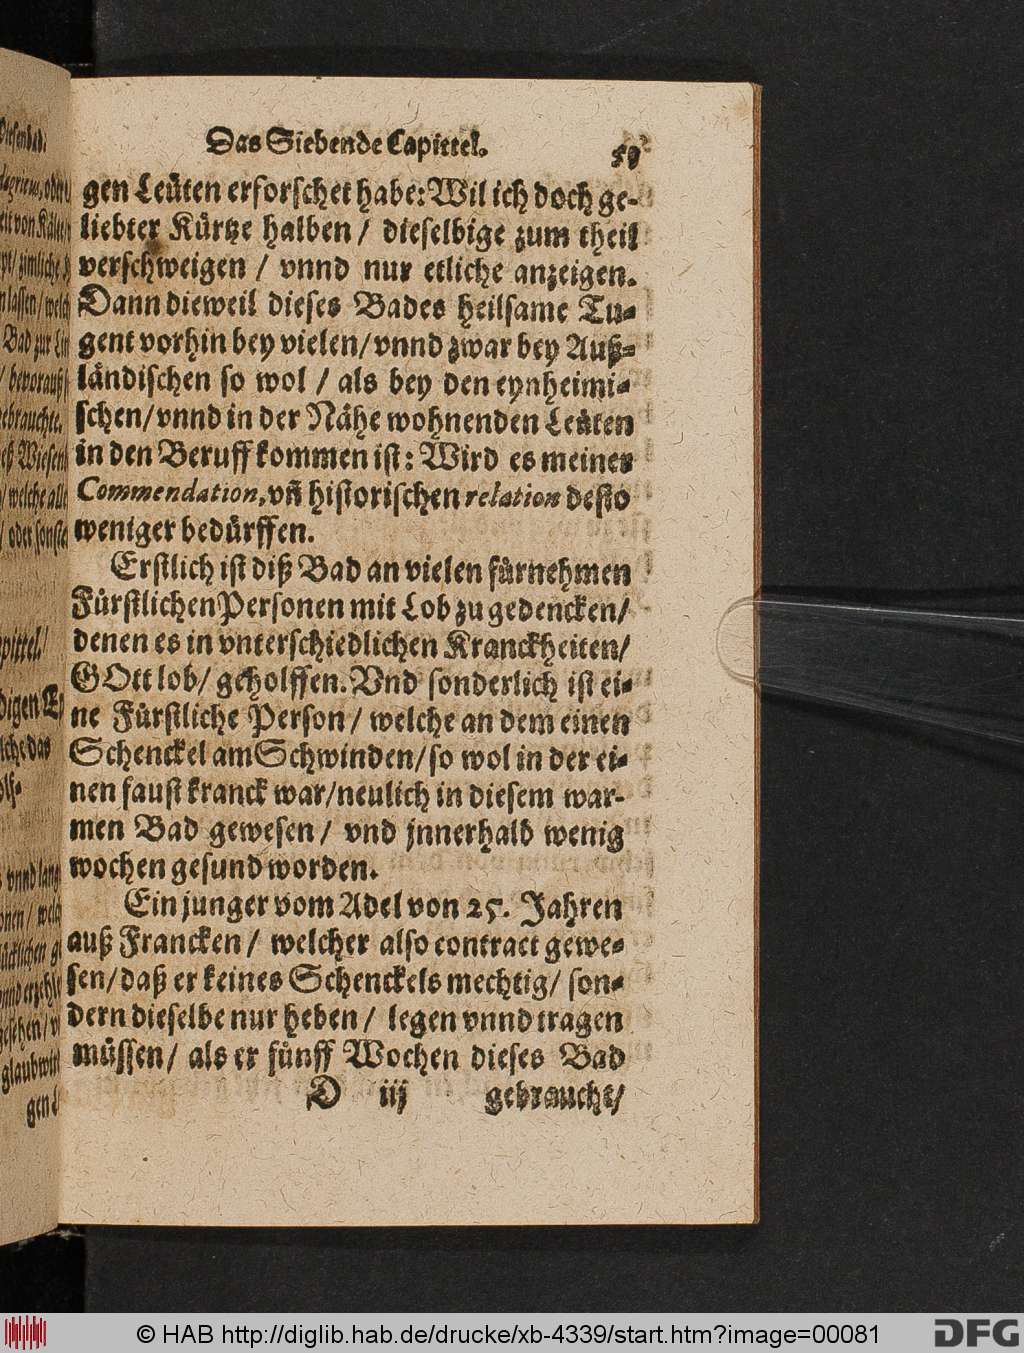 Das Siebende Capittel.
gen Leüten erforschet habe: Wil ich doch ge-
liebter Kürtze halben / dieselbige zum theil
verschweigen / vnnd nur etliche anzeigen.
Dann dieweil dieses Bades heilsame Tu-
gent vorhin bey vielen / vnnd zwar bey Auß-
ländischen so wol / als bey den eynheimi-
schen / vnnd in der Nähe wohnenden Leüten
in den Beruff kommen ist: Wird es meiner
Commendation, vñ historischen relation desto
weniger bedürffen.
Erstlich ist diß Bad an vielen fürnehmen
Fürstlichen Personen mit Lob zu gedencken /
denen es in vnterschiedlichen Kranckheiten /
GOtt lob / geholffen. Vnd sonderlich ist ei-
ne Fürstliche Person / welche an dem einen
Schenckel am Schwinden / so wol in der ei-
nen faust kranck war / neulich in diesem war-
men Bad gewesen / vnd jnnerhalb wenig
wochen gesund worden.
Ein junger vom Adel von 25. Jahren
auß Francken / welcher also contract gewe-
sen / daß er keines Schenckels mechtig / son-
dern dieselbe nur heben / legen vnnd tragen
müssen / als er fünff Wochen dieses Bad
D iij gebraucht /
© HAB http://diglib.hab.de/drucke/xb-4339/start.htm?image=00081
DFG